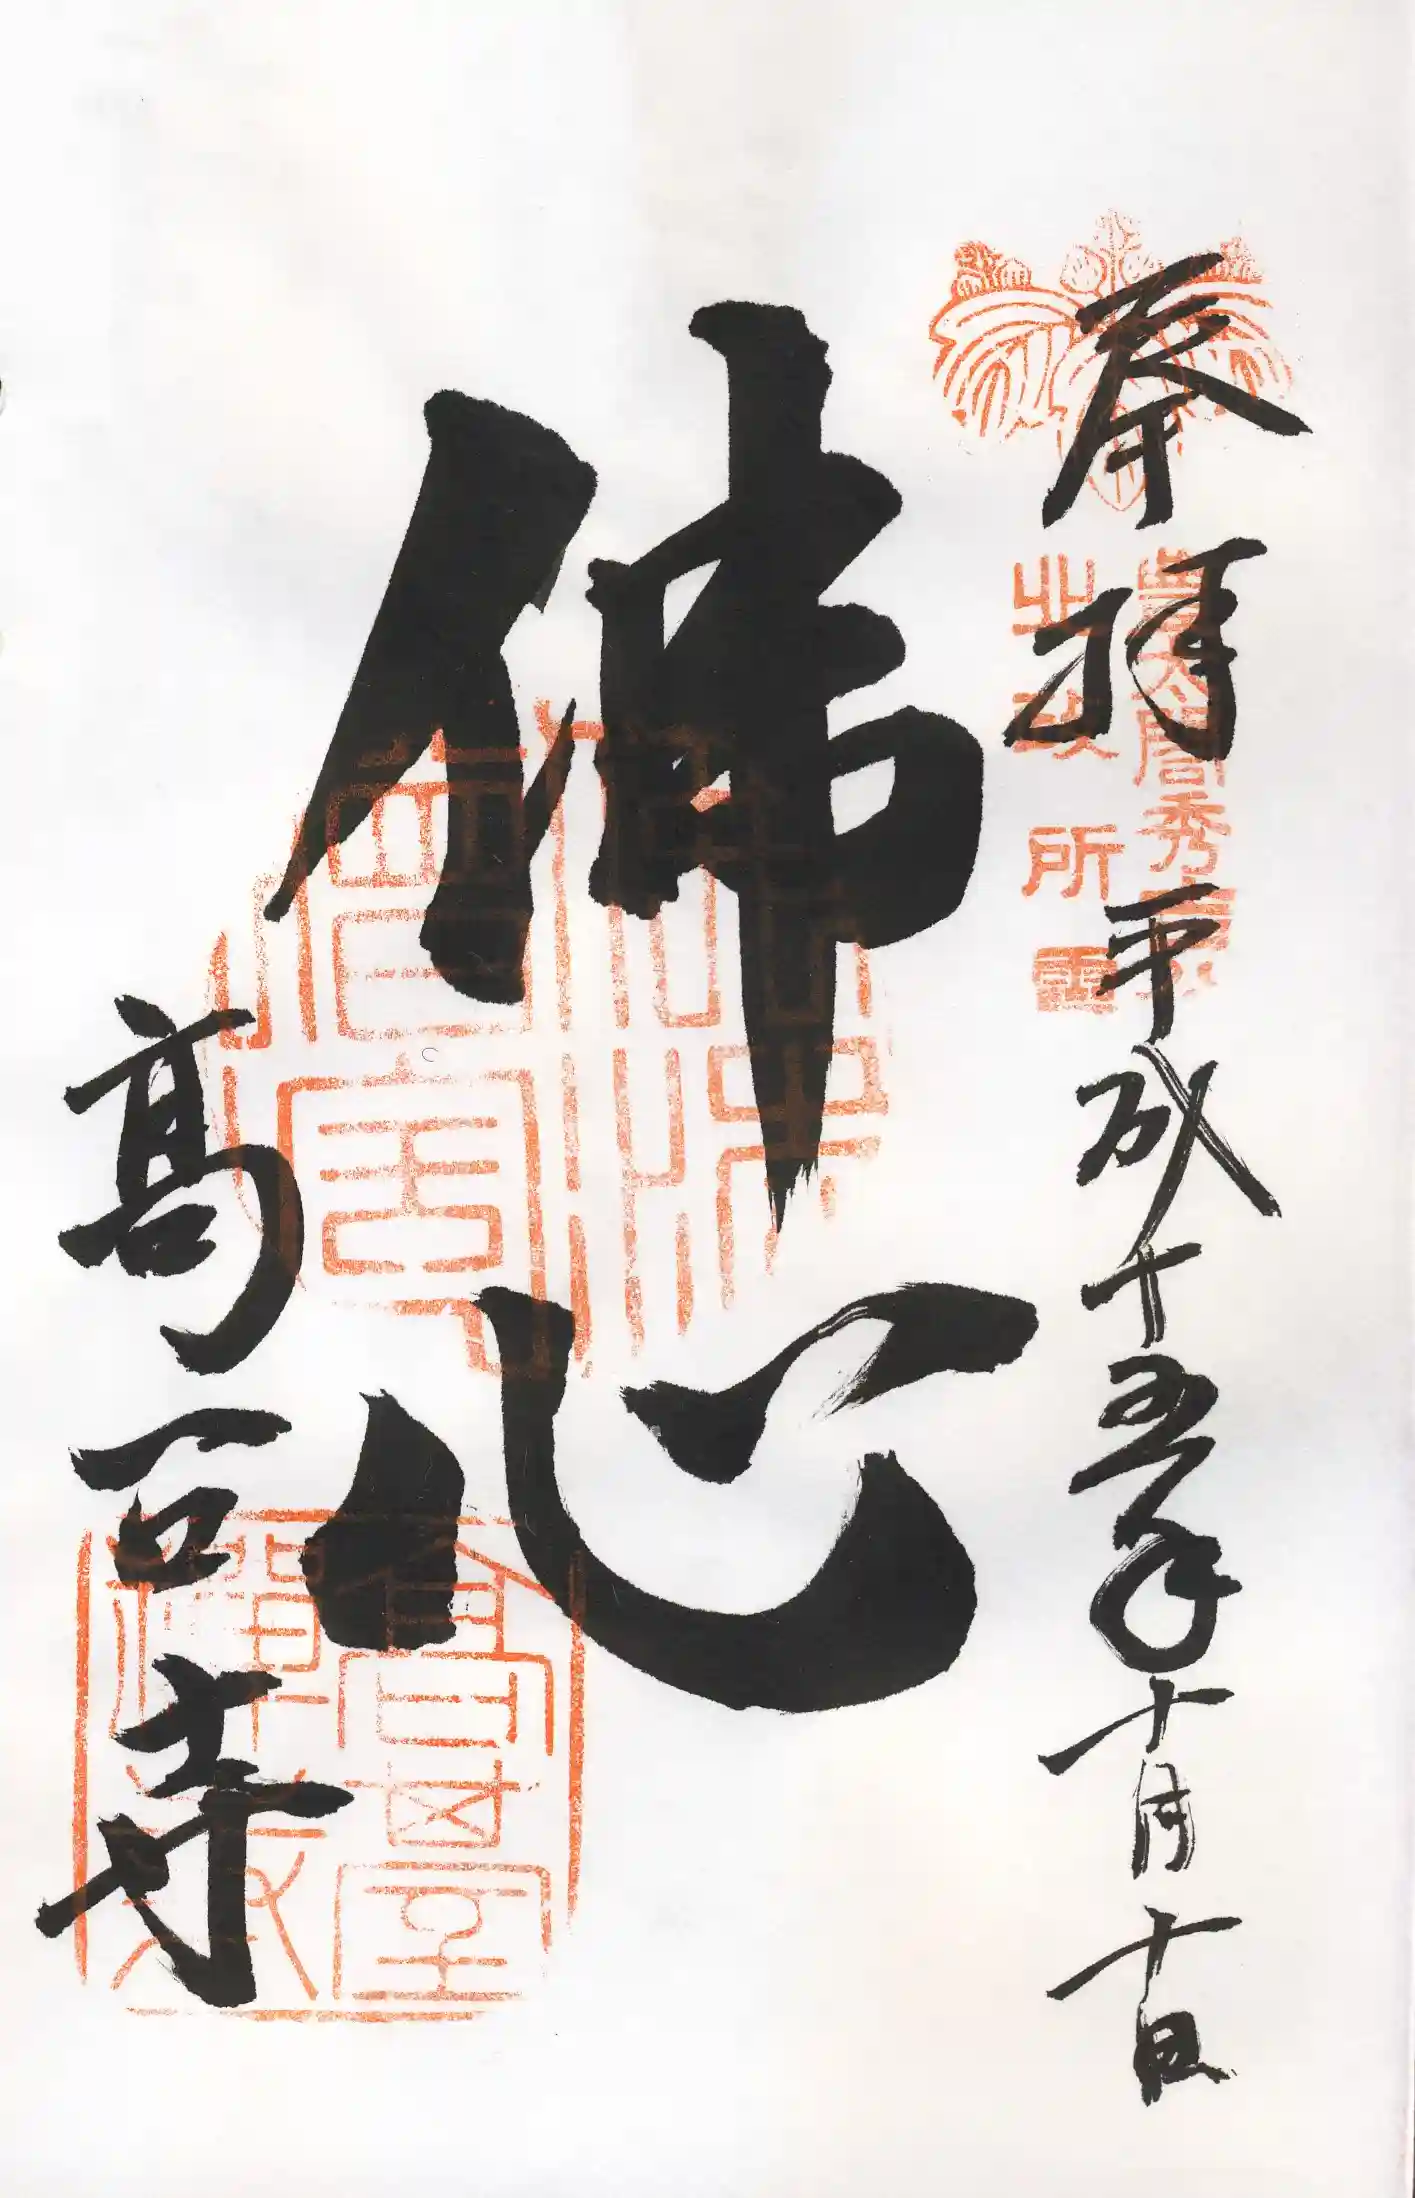 奉拝 平成十五年十月十日
豊太閤秀
北政所
佛心
高台寺